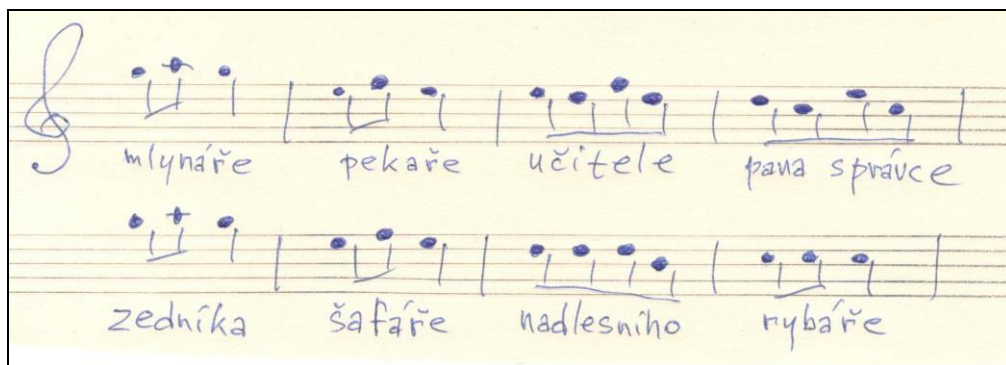 mlynáře pekaře učitele pana správce
zedníka šafáře nadlesního rybáře